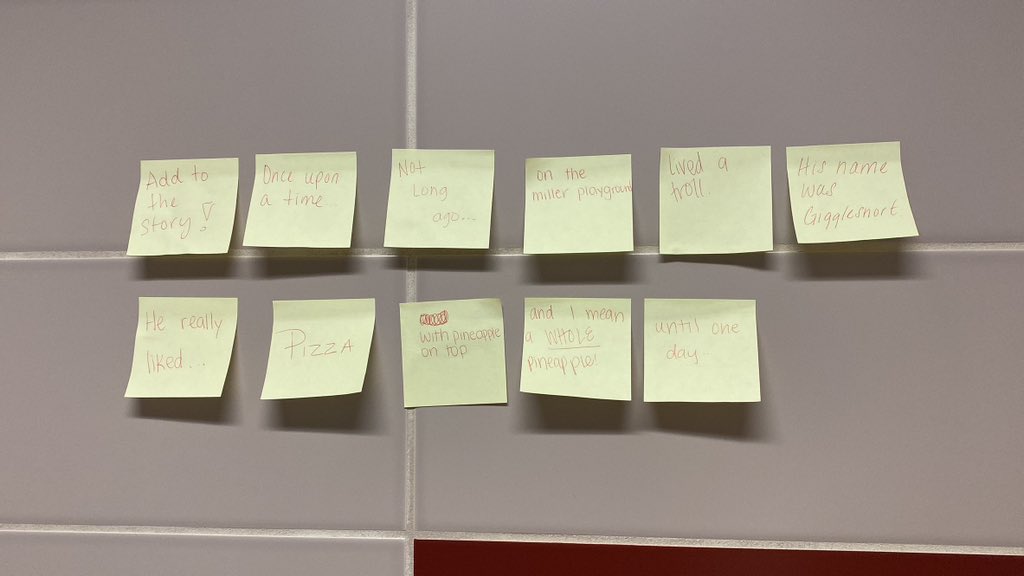 Add to
the
story!
Once upon
a time...
Not
Long
ago...
on the
miller playground
lived a
troll.
His name
was
Gigglesnort.
He really
liked...
PIZZA
with pineapple
on top
and I mean
a WHOLE
pineapple!
until one
day